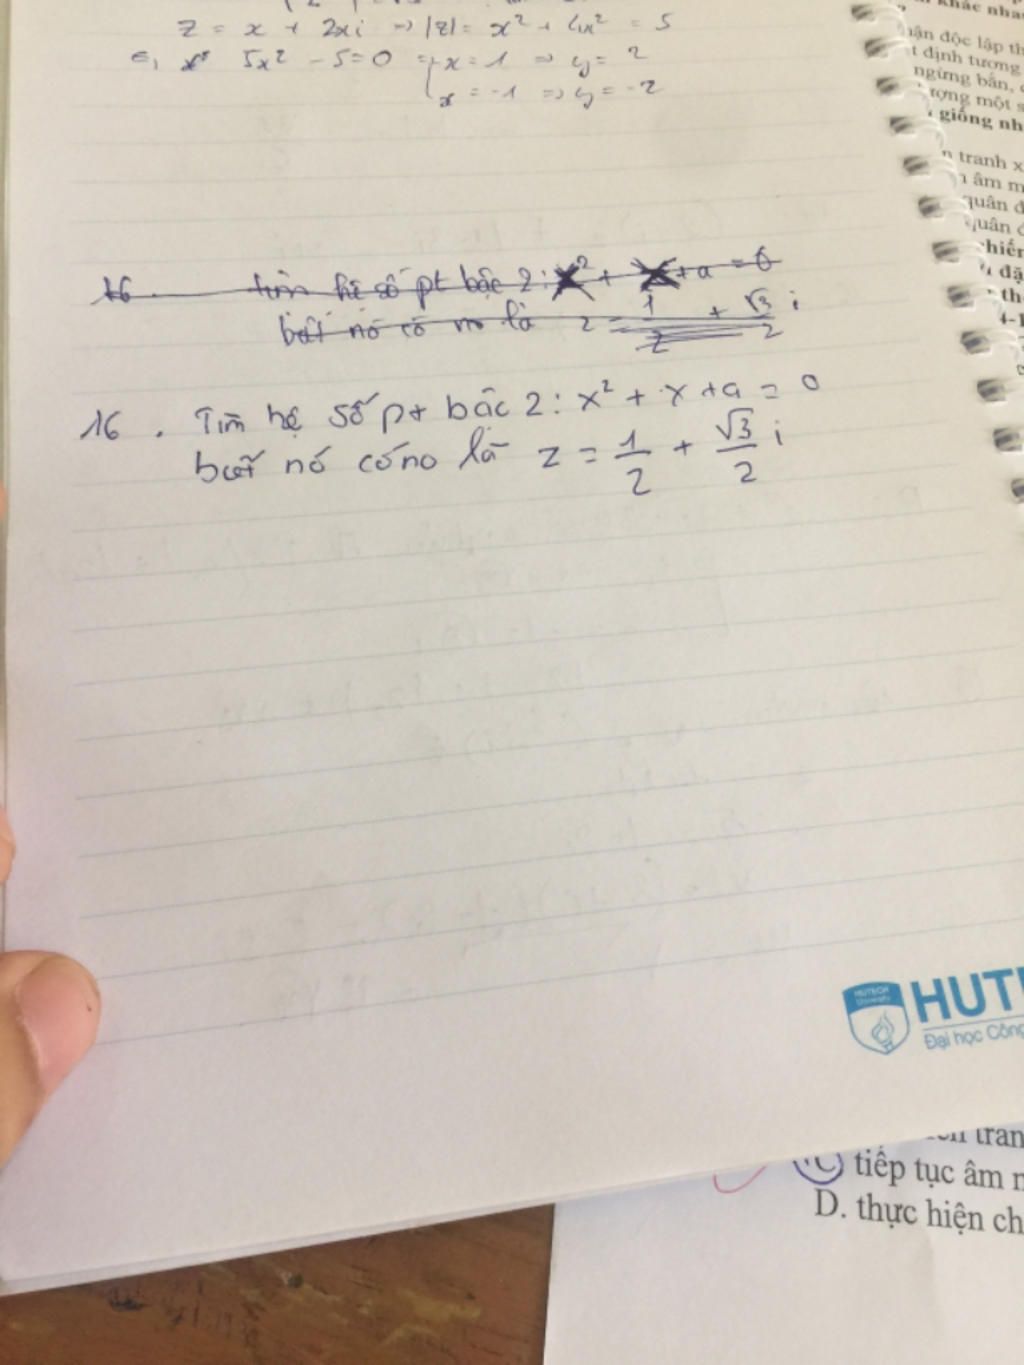 z = x + 2xi => |z| = x² + 4x² = 5
5x² - 5 = 0 => x = 1 => y = 2
x = -1 => y = -2
16. tìm hệ số pt bậc 2: x² + x + a = 0
biết nó có no là z = 1/2 + √3/2 i
16. Tìm hệ số pt bậc 2: x² + x + a = 0
biết nó có no là z = 1/2 + √3/2 i
khác nha
độc lập th
định tương
ngừng bắn,
một s
giống nh
tranh x
âm m
quân đ
quân
đặ
th
HUTECH
University
HUT
Đại học Công
tran
C tiếp tục âm
D. thực hiện ch